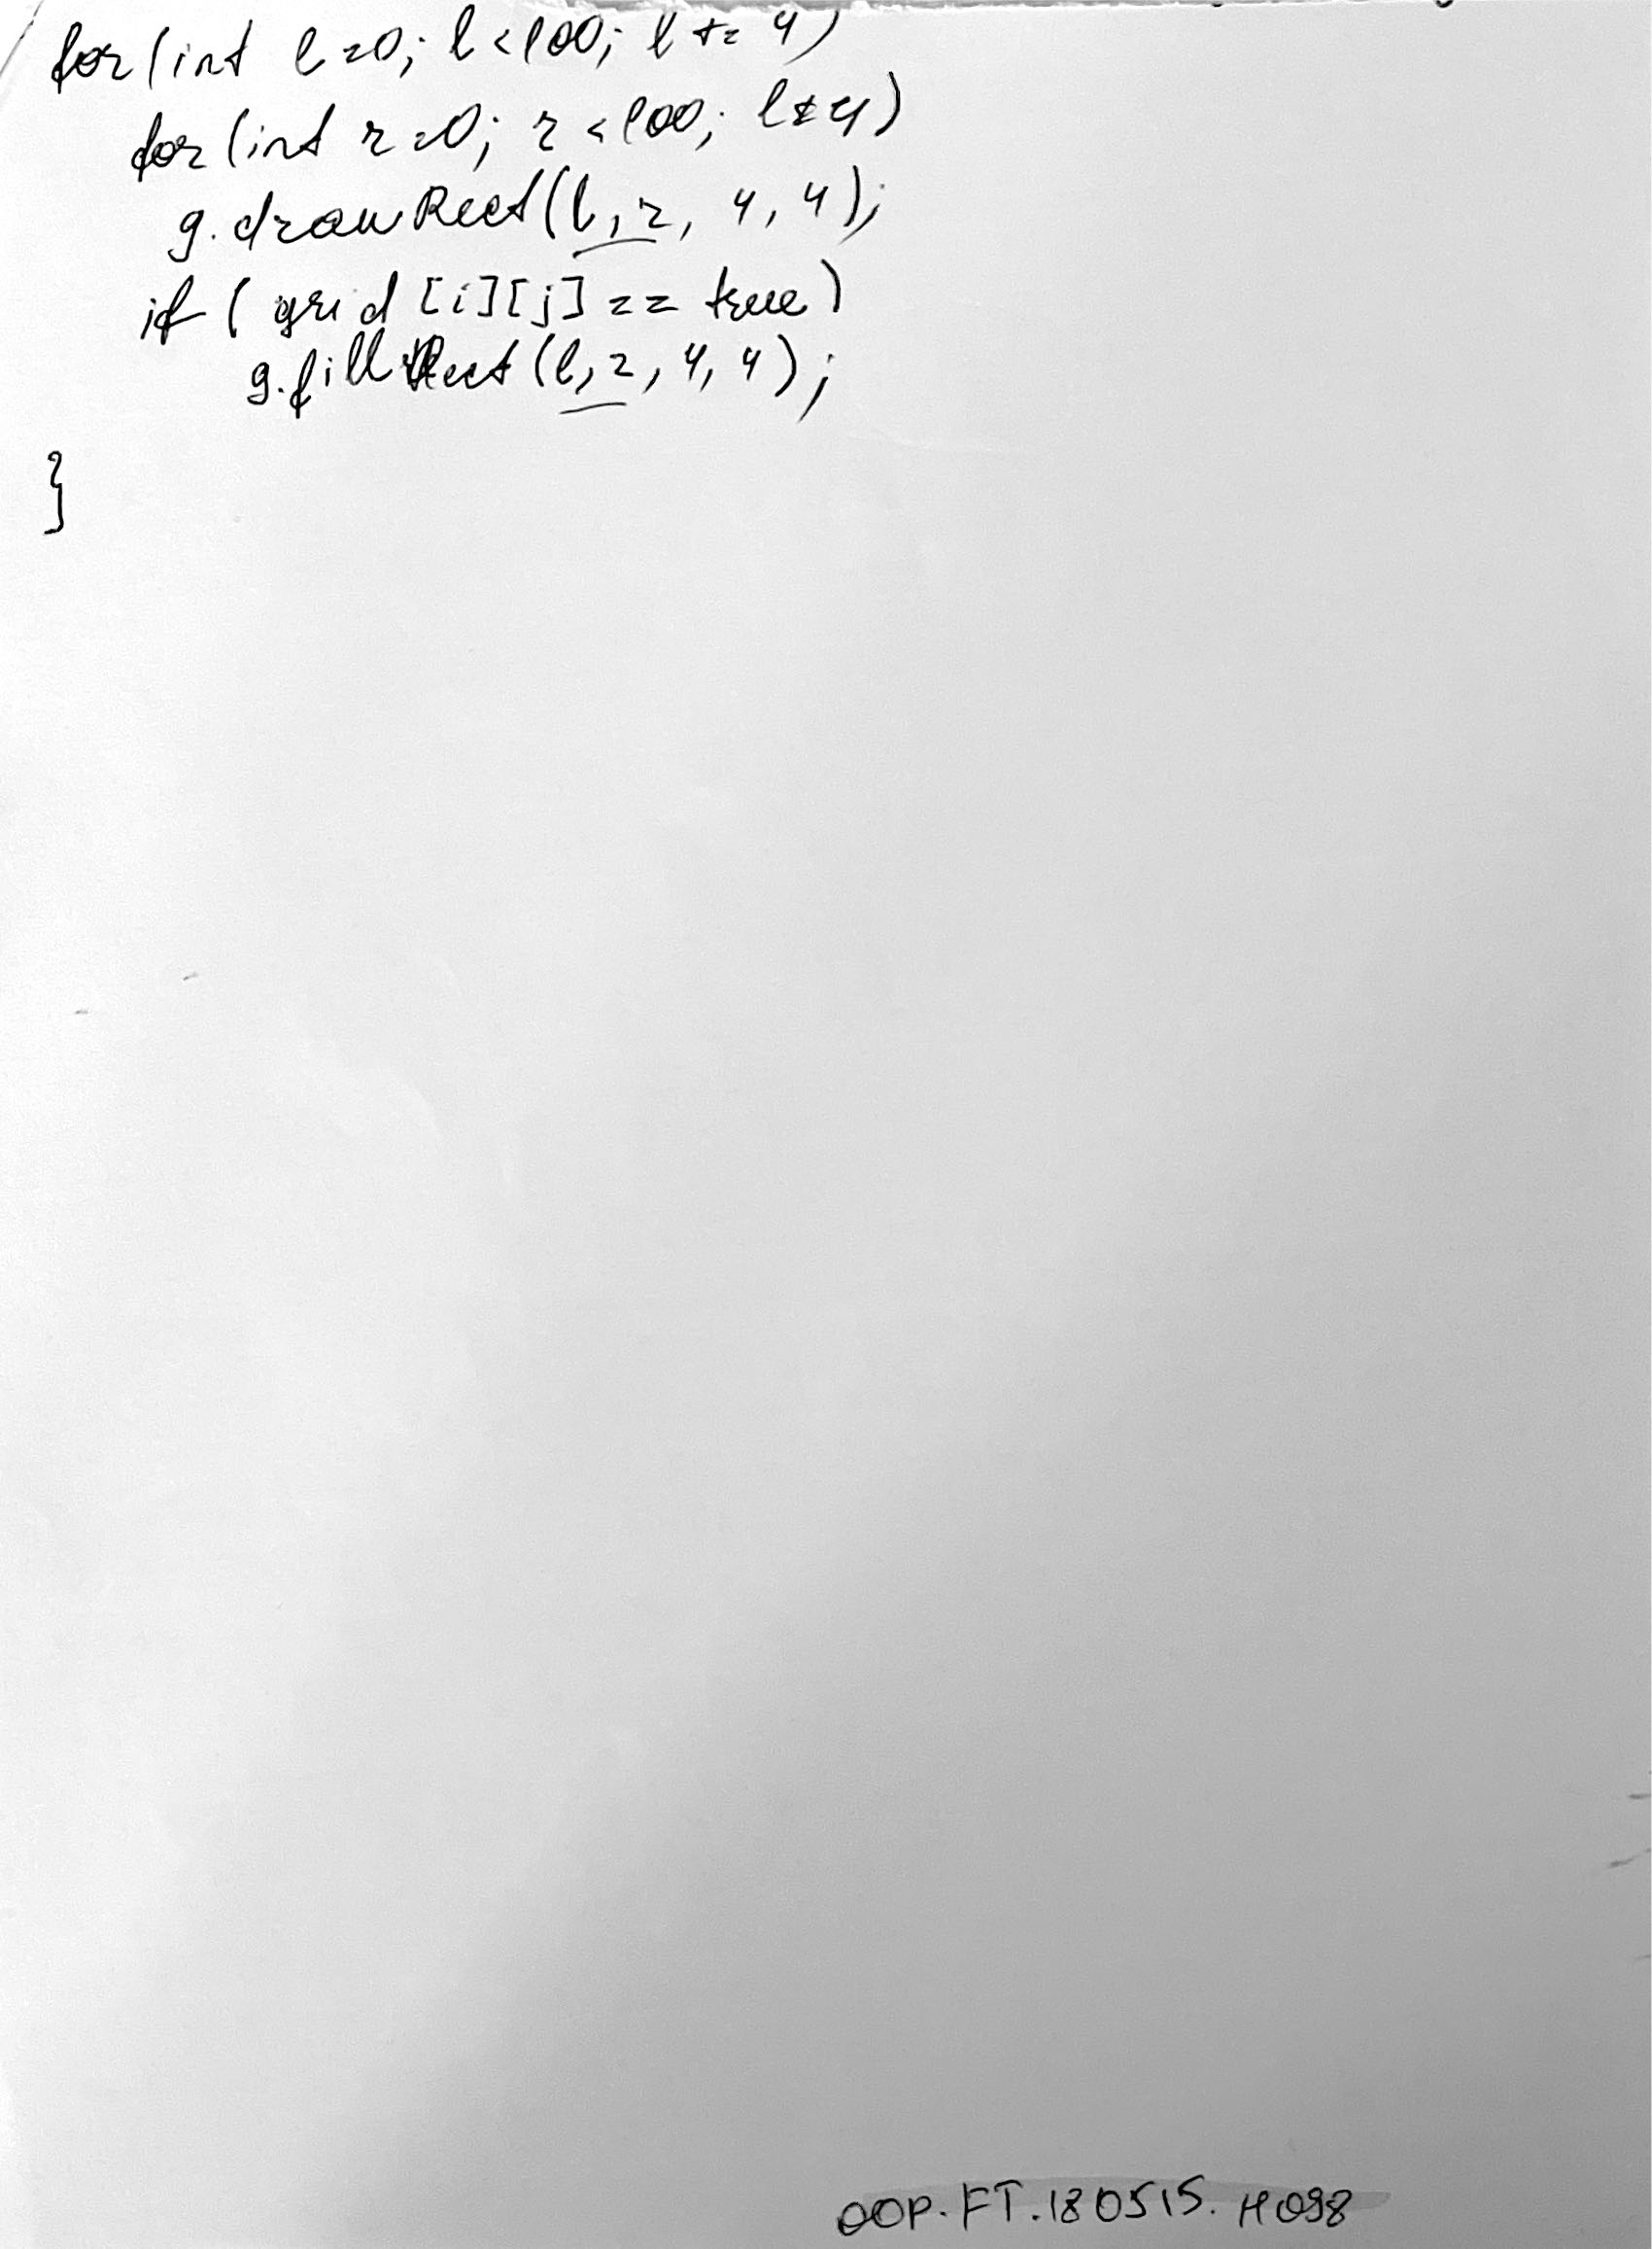 for(int l=0; l<100; l+=4)
for(int r=0; r<100; l+=4)
g.drawRect(l,r, 4, 4);
if( grid [i][j] == true)
g.fillRect(l,r, 4, 4);
}
OOP.FT.180515.H098